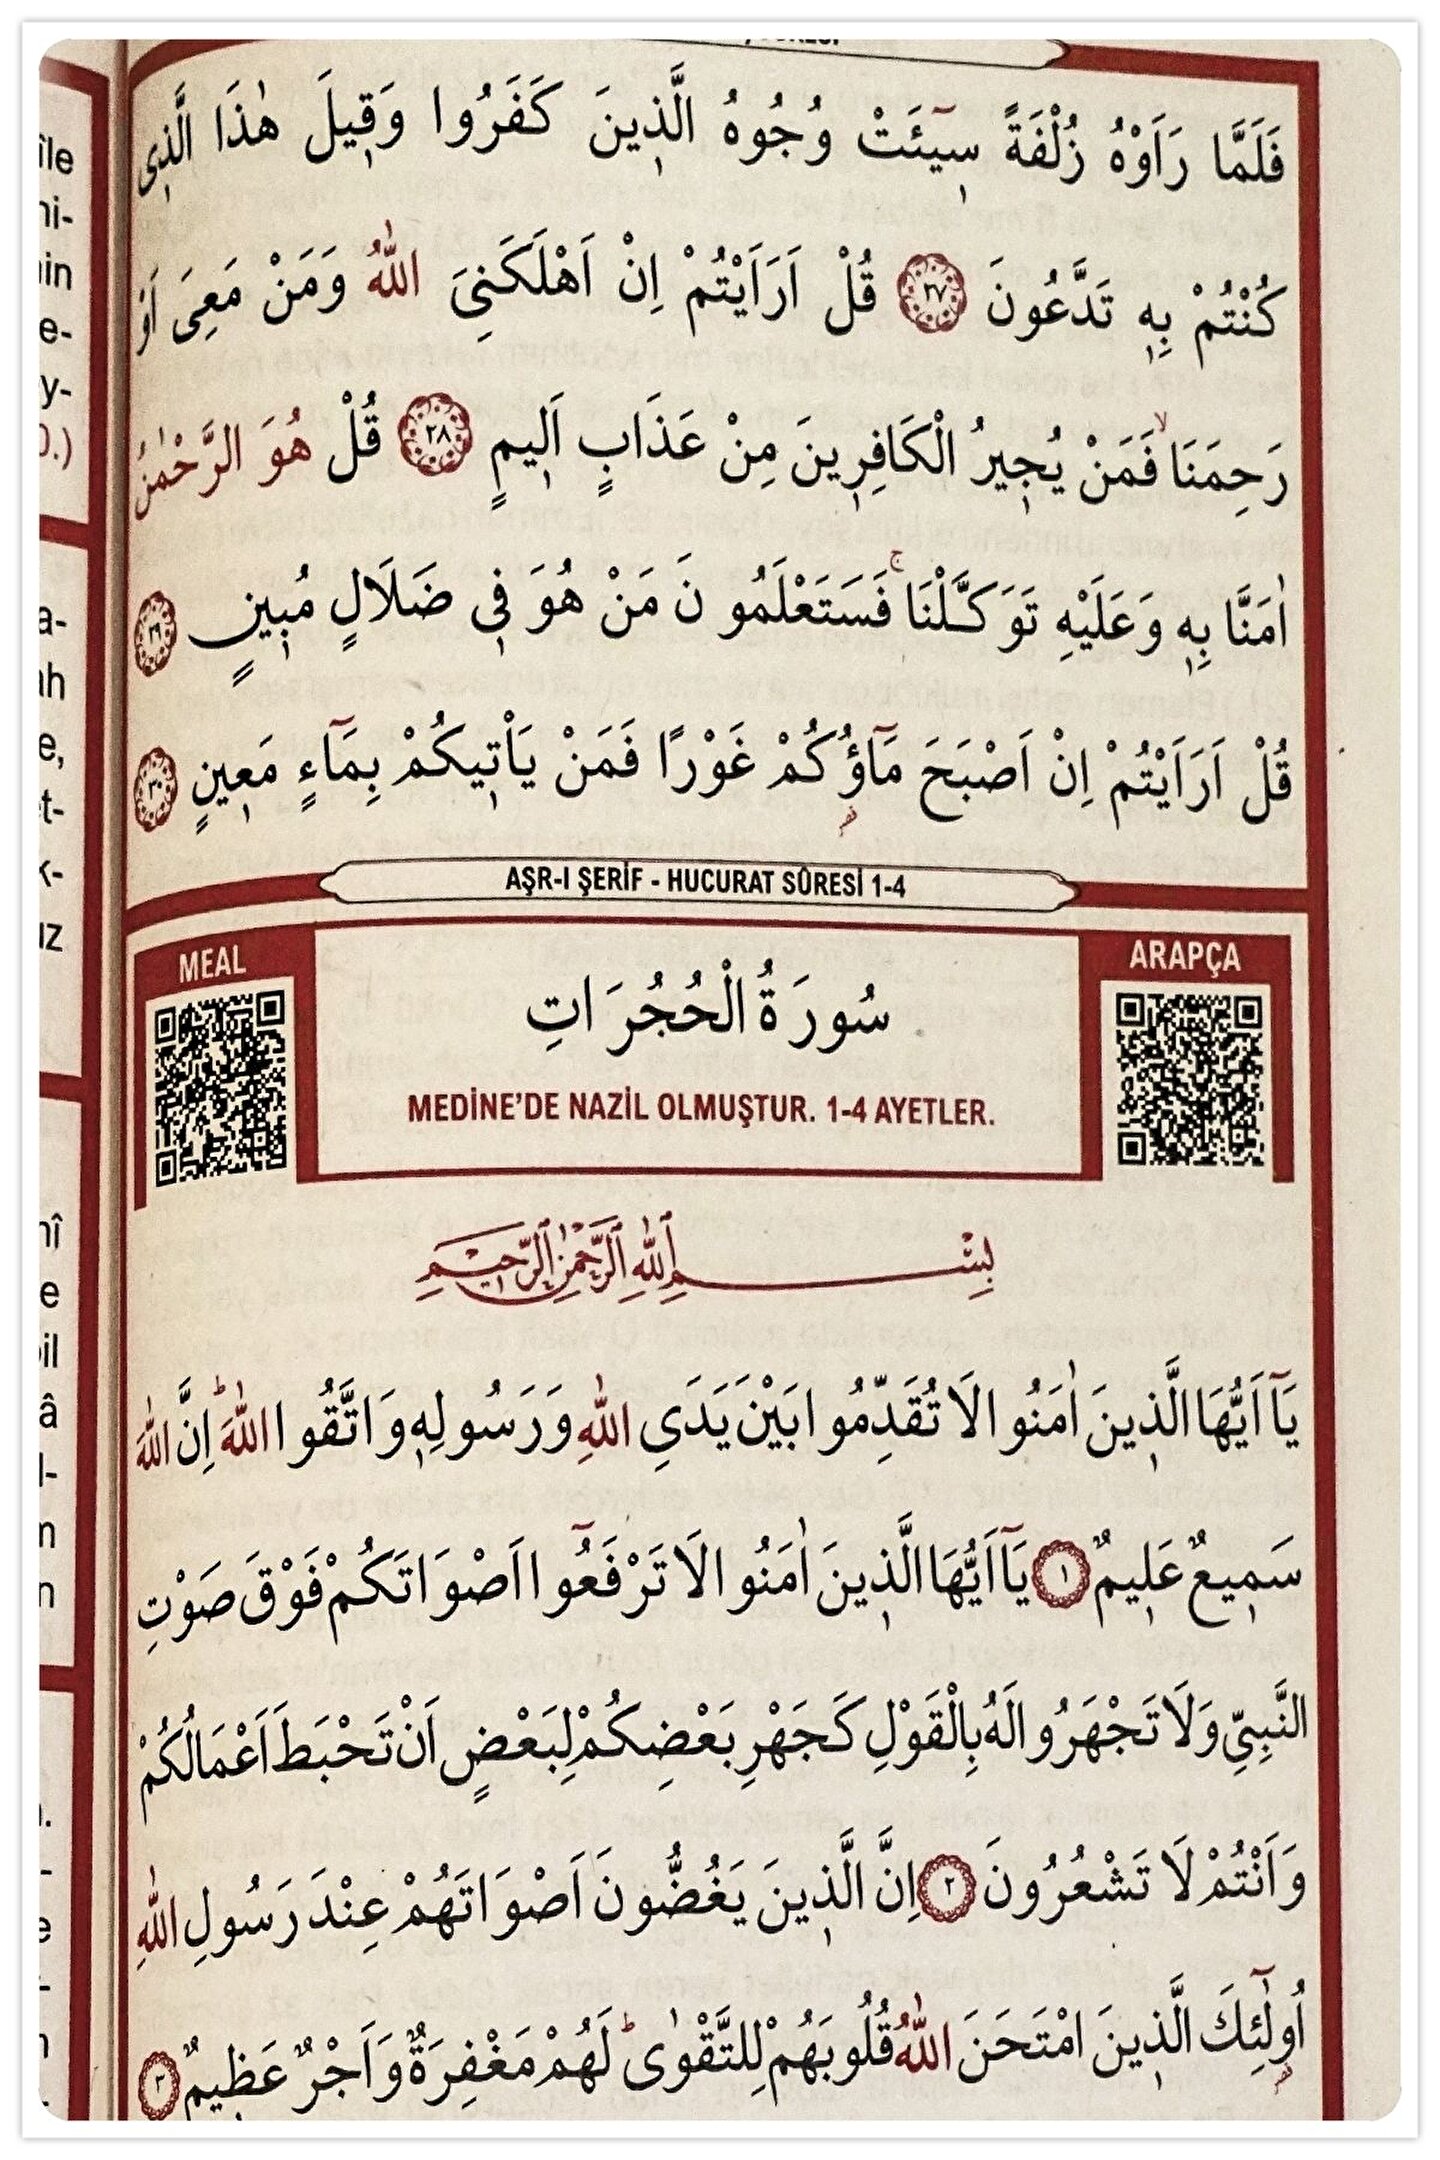 فَلَمَّا رَاَوْهُ زُلْفَةً سٖٓيئَتْ وُجُوهُ الَّذٖينَ كَفَرُوا وَقٖيلَ هٰذَا الَّذٖى
كُنْتُمْ بِهٖ تَدَّعُونَ ﴿٢٧﴾ قُلْ اَرَاَيْتُمْ اِنْ اَهْلَكَنِىَ اللّٰهُ وَمَنْ مَعِىَ اَوْ
رَحِمَنَاۙ فَمَنْ يُجٖيرُ الْكَافِرٖينَ مِنْ عَذَابٍ اَلٖيمٍ ﴿٢٨﴾ قُلْ هُوَ الرَّحْمٰنُ
اٰمَنَّا بِهٖ وَعَلَيْهِ تَوَكَّلْنَاۚ فَسَتَعْلَمُونَ مَنْ هُوَ فٖى ضَلَالٍ مُبٖينٍ ﴿٢٩﴾
قُلْ اَرَاَيْتُمْ اِنْ اَصْبَحَ مَٓاؤُ۬كُمْ غَوْرًا فَمَنْ يَاْتٖيكُمْ بِمَٓاءٍ مَعٖينٍ ﴿٣٠﴾
AŞR-I ŞERİF - HUCURAT SÛRESİ 1-4
ARAPÇA
MEAL
سُورَةُ الْحُجُرَاتِ
MEDİNE'DE NAZİL OLMUŞTUR. 1-4 AYETLER.
بِسْمِ اللّٰهِ الرَّحْمٰنِ الرَّحٖيمِ
يَٓا اَيُّهَا الَّذٖينَ اٰمَنُوا لَا تُقَدِّمُوا بَيْنَ يَدَىِ اللّٰهِ وَرَسُولِهٖ وَاتَّقُوا اللّٰهَؕ اِنَّ اللّٰهَ
سَمٖيعٌ عَلٖيمٌ ﴿١﴾ يَٓا اَيُّهَا الَّذٖينَ اٰمَنُوا لَا تَرْفَعُٓوا اَصْوَاتَكُمْ فَوْقَ صَوْتِ
النَّبِىِّ وَلَا تَجْهَرُوا لَهُ بِالْقَوْلِ كَجَهْرِ بَعْضِكُمْ لِبَعْضٍ اَنْ تَحْبَطَ اَعْمَالُكُمْ
وَاَنْتُمْ لَا تَشْعُرُونَ ﴿٢﴾ اِنَّ الَّذٖينَ يَغُضُّونَ اَصْوَاتَهُمْ عِنْدَ رَسُولِ اللّٰهِ
اُو۬لٰٓئِكَ الَّذٖينَ امْتَحَنَ اللّٰهُ قُلُوبَهُمْ لِلتَّقْوٰىؕ لَهُمْ مَغْفِرَةٌ وَاَجْرٌ عَظٖيمٌ ﴿٣﴾